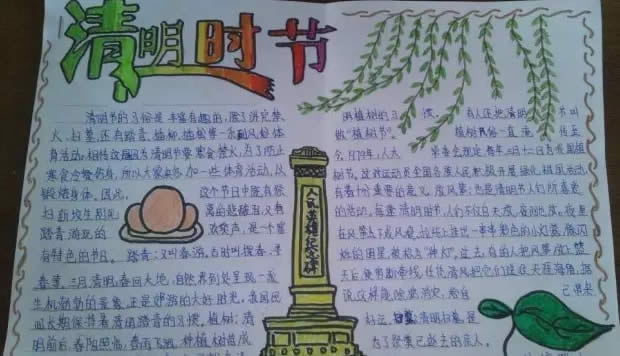 清明时节
清明节的习俗是丰富有趣的,除了讲究禁
火、扫墓,还有踏青、插柳、植树等一系列风俗体
育活动。相传这是因为清明节要寒食禁火,为了防止
寒食冷餐伤身,所以大家来参加一些体育活动,以
锻炼身体。因此,这个节日中既有祭
扫新坟生别死离的悲酸泪,又有
踏青游玩的欢笑声,是一个富
有特色的节日。踏青:又叫春游。古时叫探春、寻
春等。三月清明,春回大地,自然界到处呈现一派
生机勃勃的景象,正是郊游的大好时光。我国民
间长期保持着清明踏青的习惯。植树:清
明前后,春阳照临,春雨飞洒,种植树苗成
人民英雄纪念碑
明植树的习惯
有人还把清明节叫
做"植树节"。植树风俗一直流传至
今。1979年,人大常委会规定,每年三月十二日为我国植
树节。这对动员全国各族人民积极开展绿化祖国活动,
有着十分重要的意义。放风筝:也是清明节人们所喜爱
的活动。每逢清明时节,人们不仅白天放,夜间也放。夜里
在风筝下或风稳拉线上挂上一串串彩色的小灯笼,像闪
烁的明星,被称为"神灯"。过去,有的人把风筝放上蓝
天后,便剪断牵线,任凭清风把它们送往天涯海角,据
说这样能除病消灾,给自己带来
好运。扫墓:清明扫墓,是
为了祭奠已逝去的亲人,